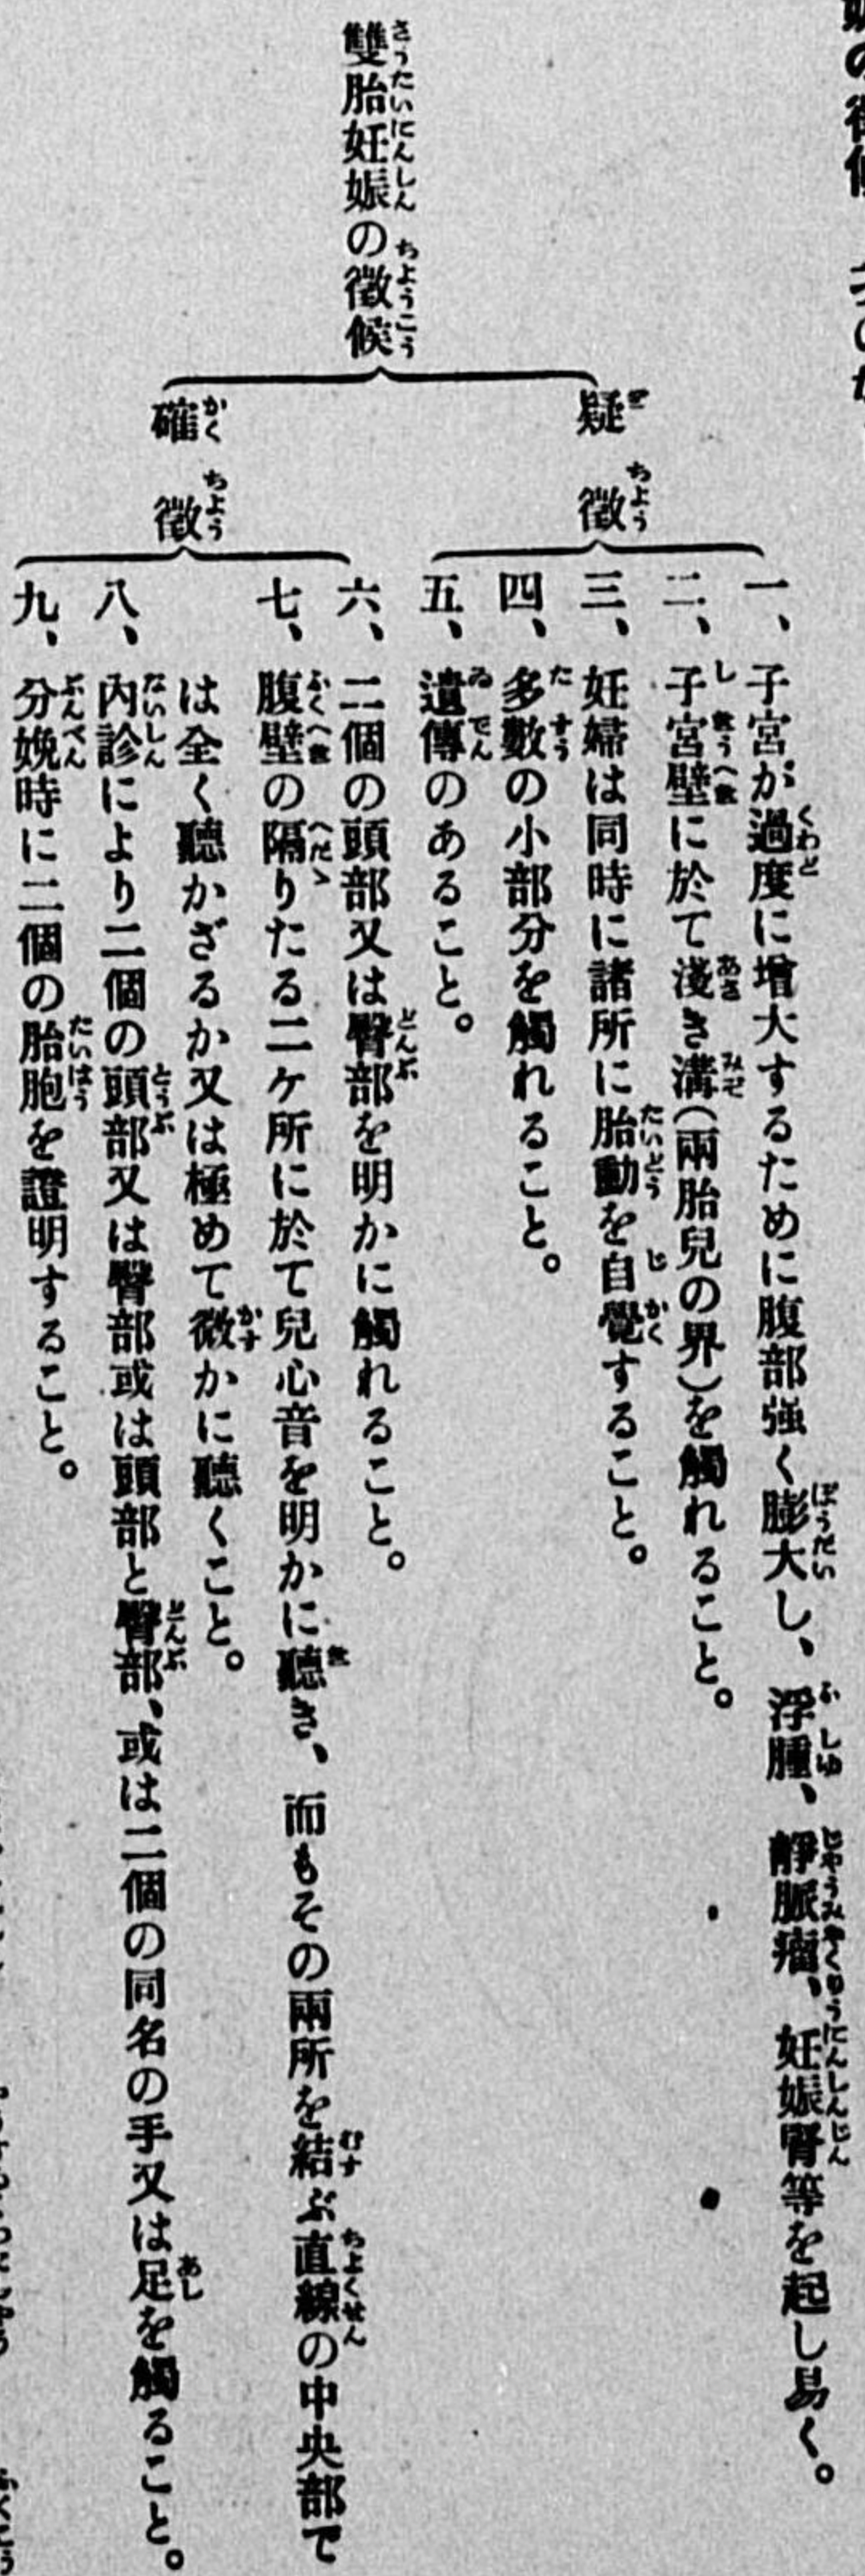 雙胎妊娠の徵候
疑徵
一、子宮が過度に增大するために腹部强く膨大し、浮腫、靜脈瘤、妊娠腎等を起し易く。
二、子宮壁に於て淺き溝(兩胎兒の界)を觸れること。
三、妊婦は同時に諸所に胎動を自覺すること。
四、多數の小部分を觸れること。
五、遺傳のあること。
確徵
六、二個の頭部又は臀部を明かに觸れること。
七、腹壁の隔りたる二ケ所に於て兒心音を明かに聽き、而もその兩所を結ぶ直線の中央部で
は全く聽かざるか又は極めて微かに聽くこと。
八、內診により二個の頭部又は臀部或は頭部と臀部、或は二個の同名の手又は足を觸ること。
九、分娩時に二個の胎胞を證明すること。